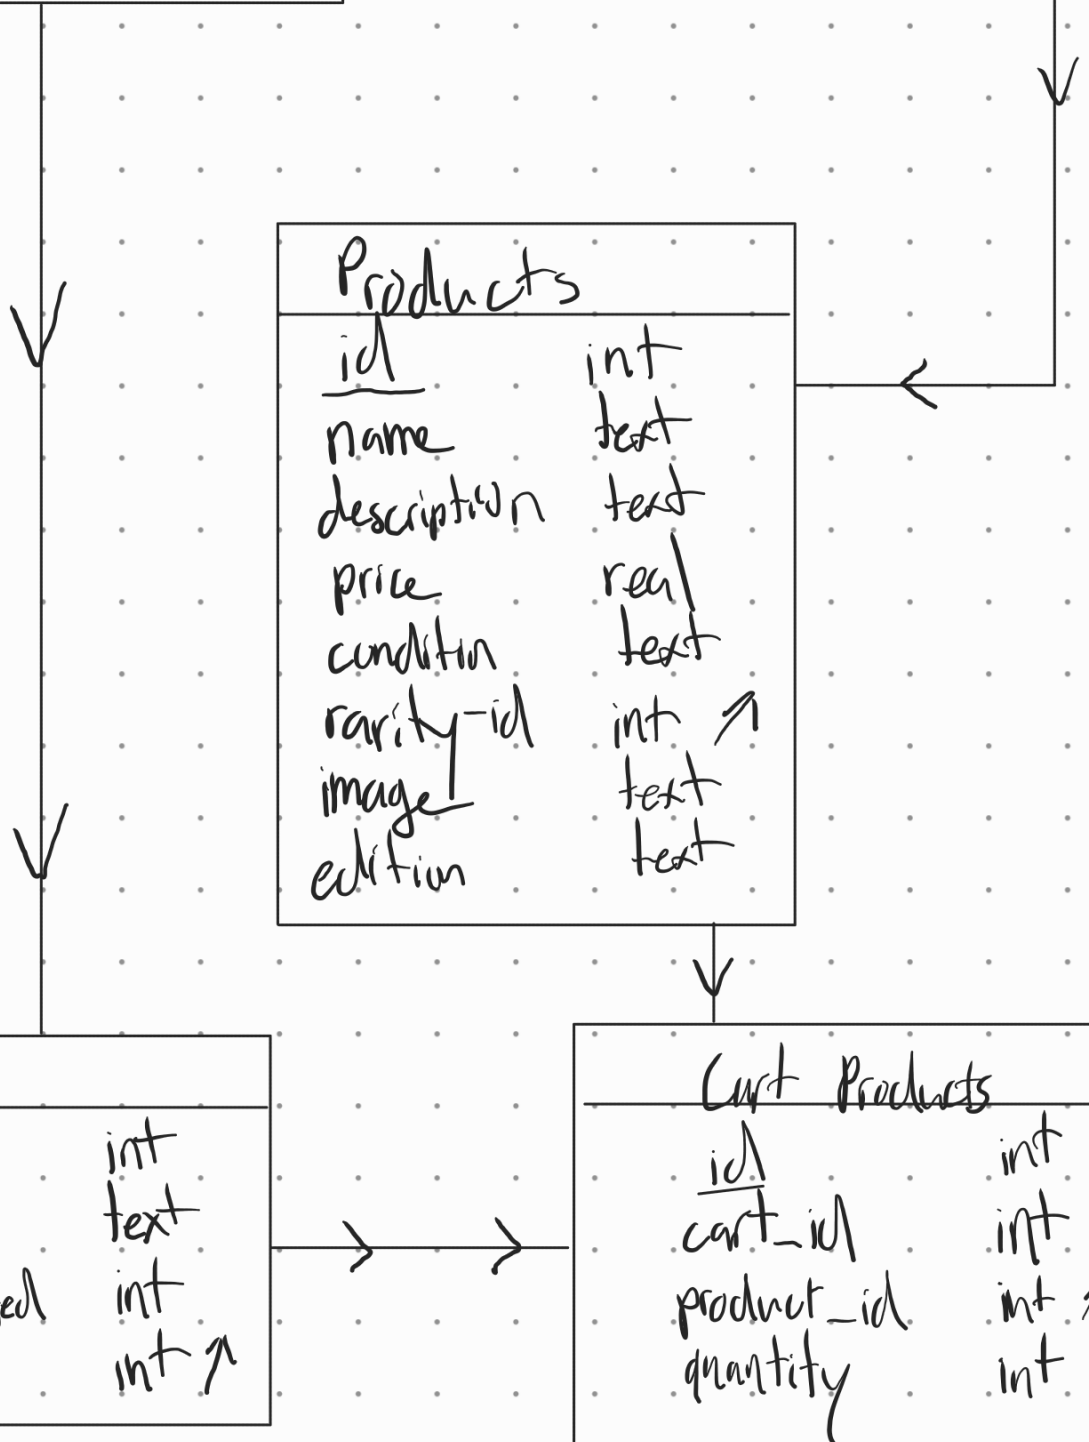 Products
id int
name text
description text
price real
condition text
rarity_id int ↗
image text
edition text
int
text
ed int
int ↗
Cart Products
id int
cart_id int
product_id int
quantity int